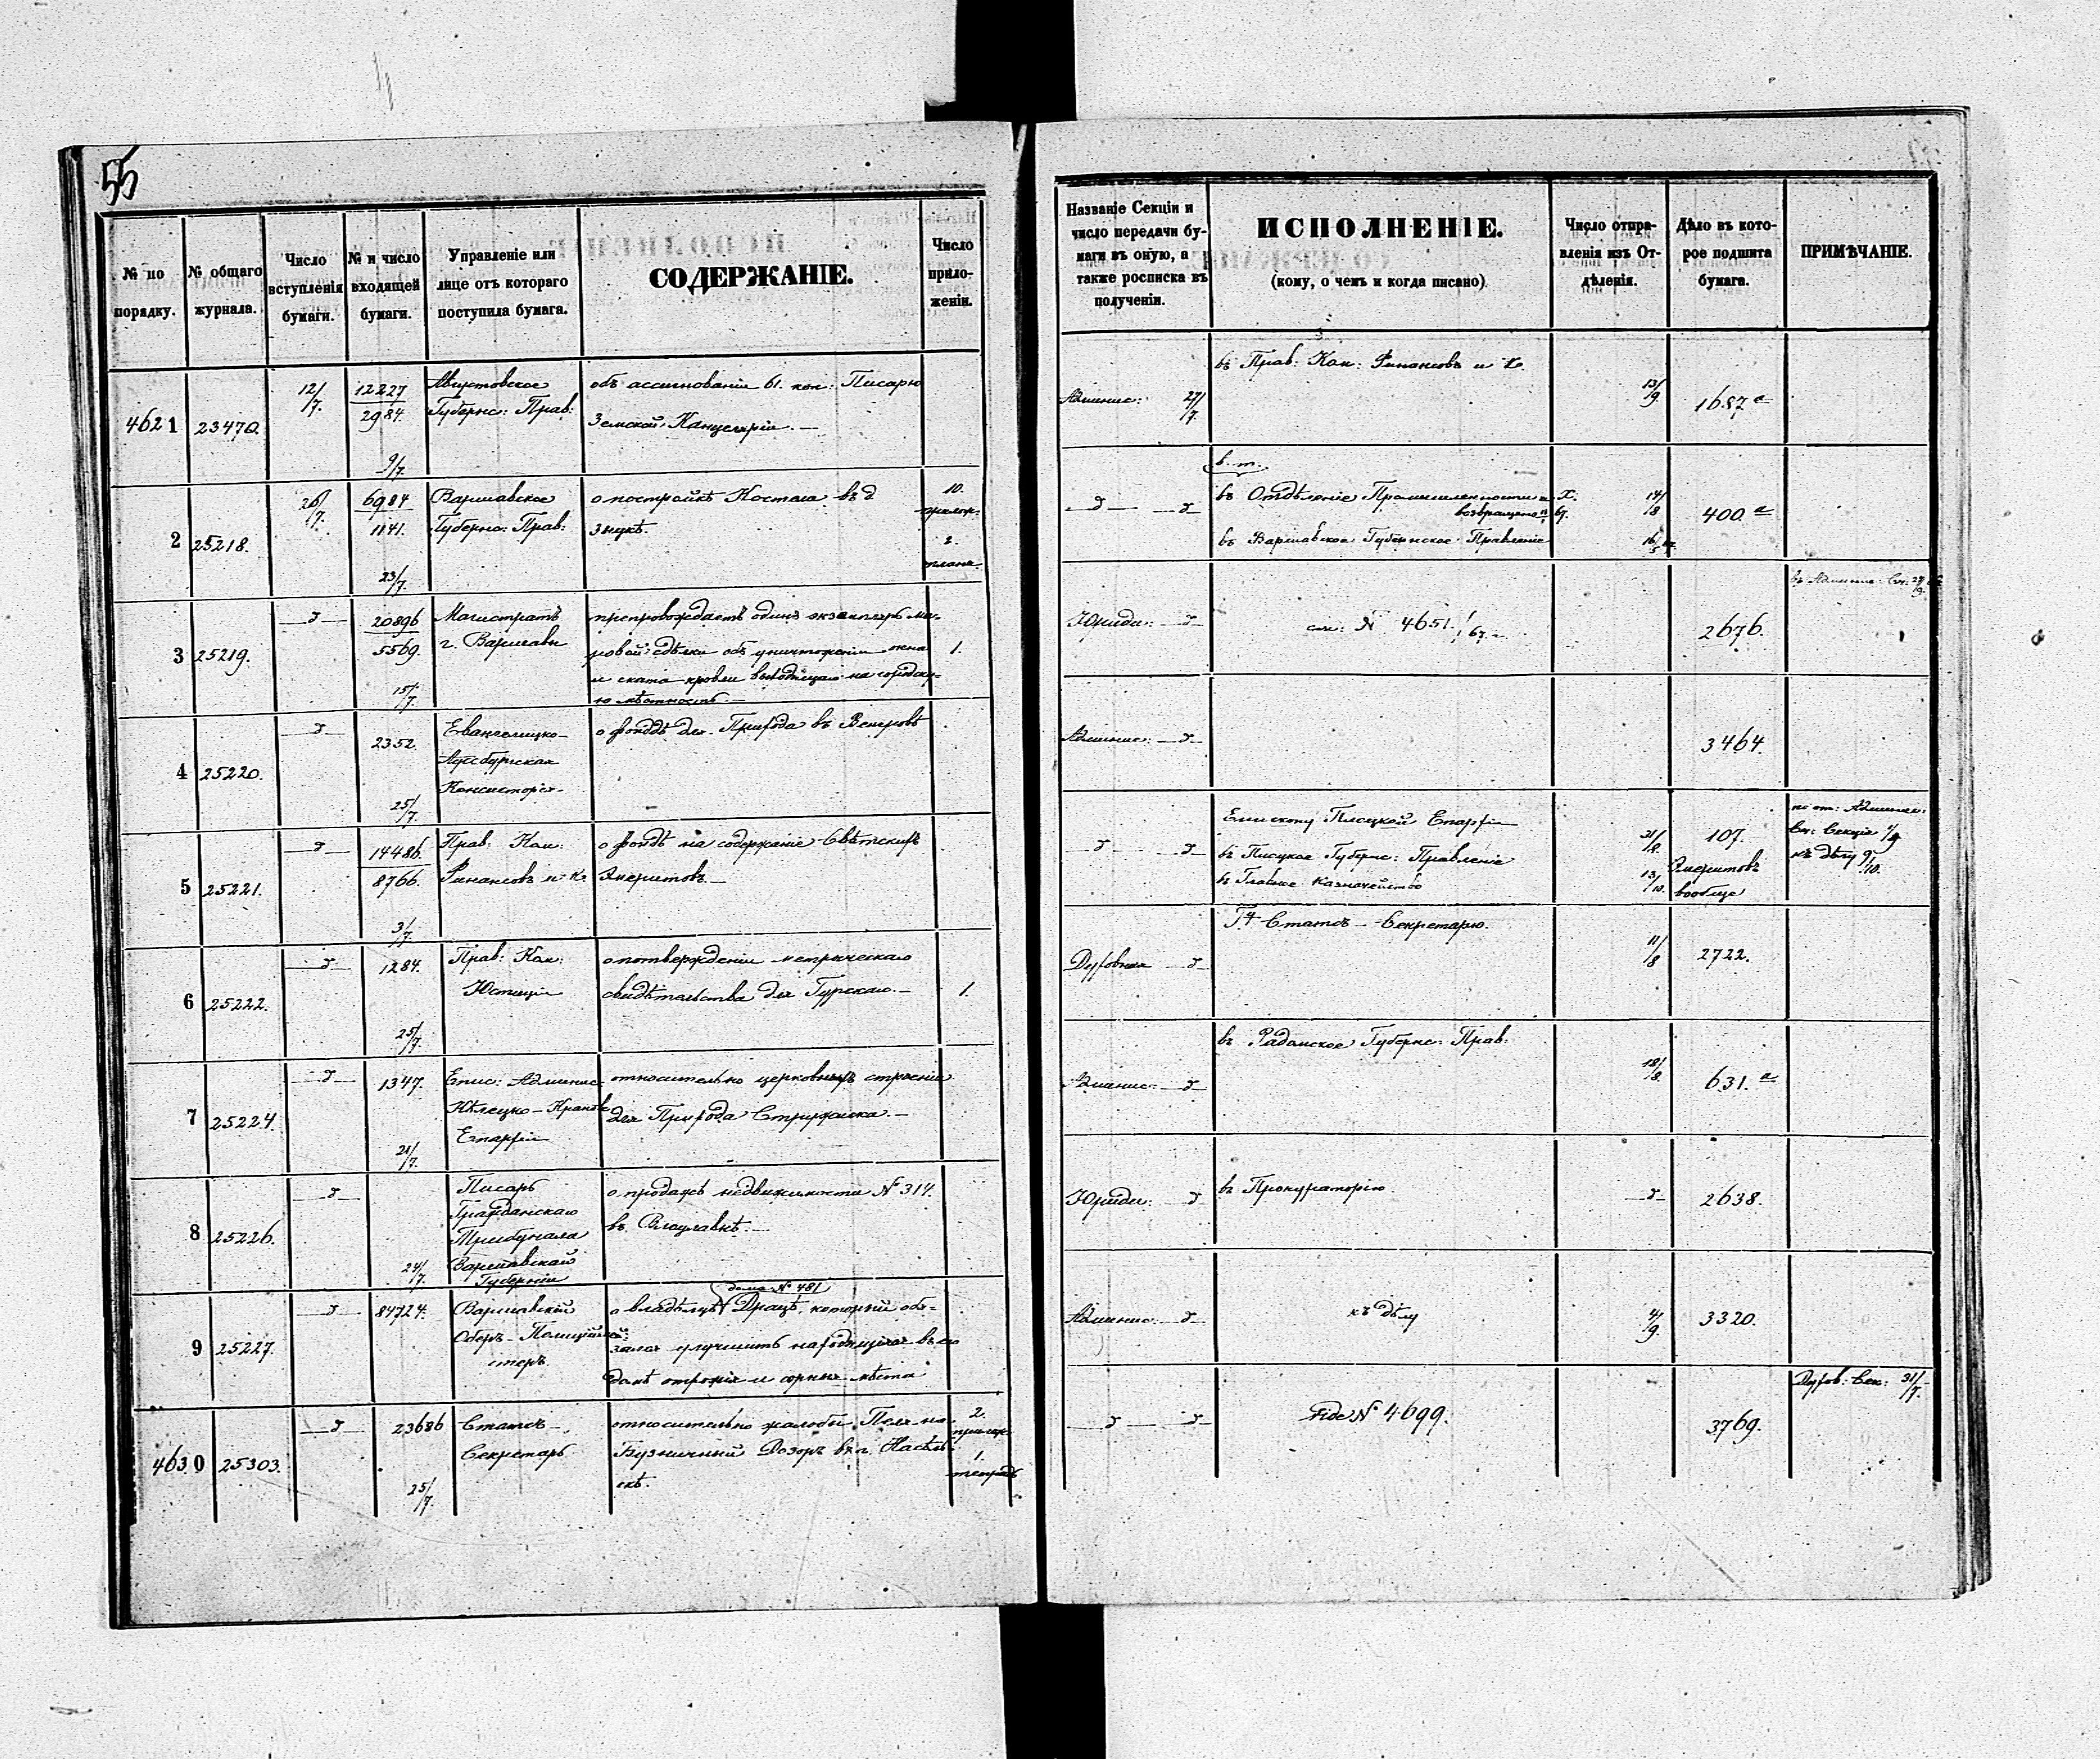 55
№ по порядку.
№ общаго журнала.
Число вступленія бумаги.
№ и число входящей бумаги.
Управленіе или лице отъ котораго поступила бумага.
СОДЕРЖАНІЕ.
Число приложеній.
4621
23470.
12/7.
12227
2984.
9/7.
Августовское
Губернс: Прав:
объ ассигнованіи 61. коп: Писарю
Земской Канцеляріи. —
2
25218.
26/7.
6984
1141.
23/7.
Варшавское
Губернс: Прав:
о постройкѣ Костела въ д.
10.
прилож.
2.
плана.
3
25219.
20896
5569.
15/7.
Магистратъ
г. Варшавы
препровождаетъ одинъ экземпляръ ми-
ровой сдѣлки объ уничтоженіи окна
и ската кровли выходящаго на городску-
ю мѣстность. —
1.
4
25220.
2352.
25/7.
Евангелицко-
Аугсбургская
Консисторія
о фондѣ для Прихода въ Венгровѣ
5
25221.
14486.
8766.
3/7.
Прав: Ком:
Финансовъ и К.
о фондѣ на содержаніе Свѣтскихъ
Эмеритовъ. —
6
25222.
1284.
25/7.
Прав: Ком:
Юстиціи
о потвержденіи метрическаго
свидѣтельства для Гурскаго. —
1.
7
25224.
1347.
21/7.
Епис: Админис:
Кѣлецко-Краков:
Епархіи
относительно церковныхъ строеній
для Прихода
8
25226.
24/7.
Писарь
Гражданскаго
Трибунала
Варшавской
Губерніи
о продажѣ недвижимости № 314.
въ Влоцлавкѣ. —
9
25227.
84724.
Варшавскій
Оберъ-Полицій-
мейстеръ
дома № 481
о владѣльцѣ который обя-
зался улучшить находящіяся въ его
домѣ отхожія и сорныя мѣста
4630
25303.
23686
25/7.
Статсъ-
Секретарь
относительно жалобы на
Бузничный Дозоръ въ г. Насѣль-
скѣ.
2.
прилож.
1.
тетрадь
Названіе Секціи и число передачи бумаги въ оную, а также росписка въ полученіи.
ИСПОЛНЕНІЕ.
(кому, о чемъ и когда писано).
Число отправленія изъ Отдѣленія.
Дѣло въ которое подшита бумага.
ПРИМѢЧАНІЕ.
Админис: 27/7.
въ Прав: Ком: Финансовъ и К.
13/9.
1687 а
въ Отдѣленіе Промышленности и Х.
возвращено
въ Варшавское Губернское Правленіе
14/8
400 а
Юриди:
см: № 4651.
2676.
Админис:
3464.
Епископу Плоцкой Епархіи
въ Плоцкое Губернс: Правленіе
въ Главное Казначейство
31/8.
13/10.
107.
Эмеритовъ
вообще
Духовная
Гну Статсъ-Секретарю.
11/8
2722.
Админис:
въ Радомское Губернс: Прав:
18/8.
631. а
Юриди:
въ Прокураторію.
2638.
Админис:
къ дѣлу
4/9.
3320.
Vide № 4699.
3769.
Духов: Сек: 31/7.